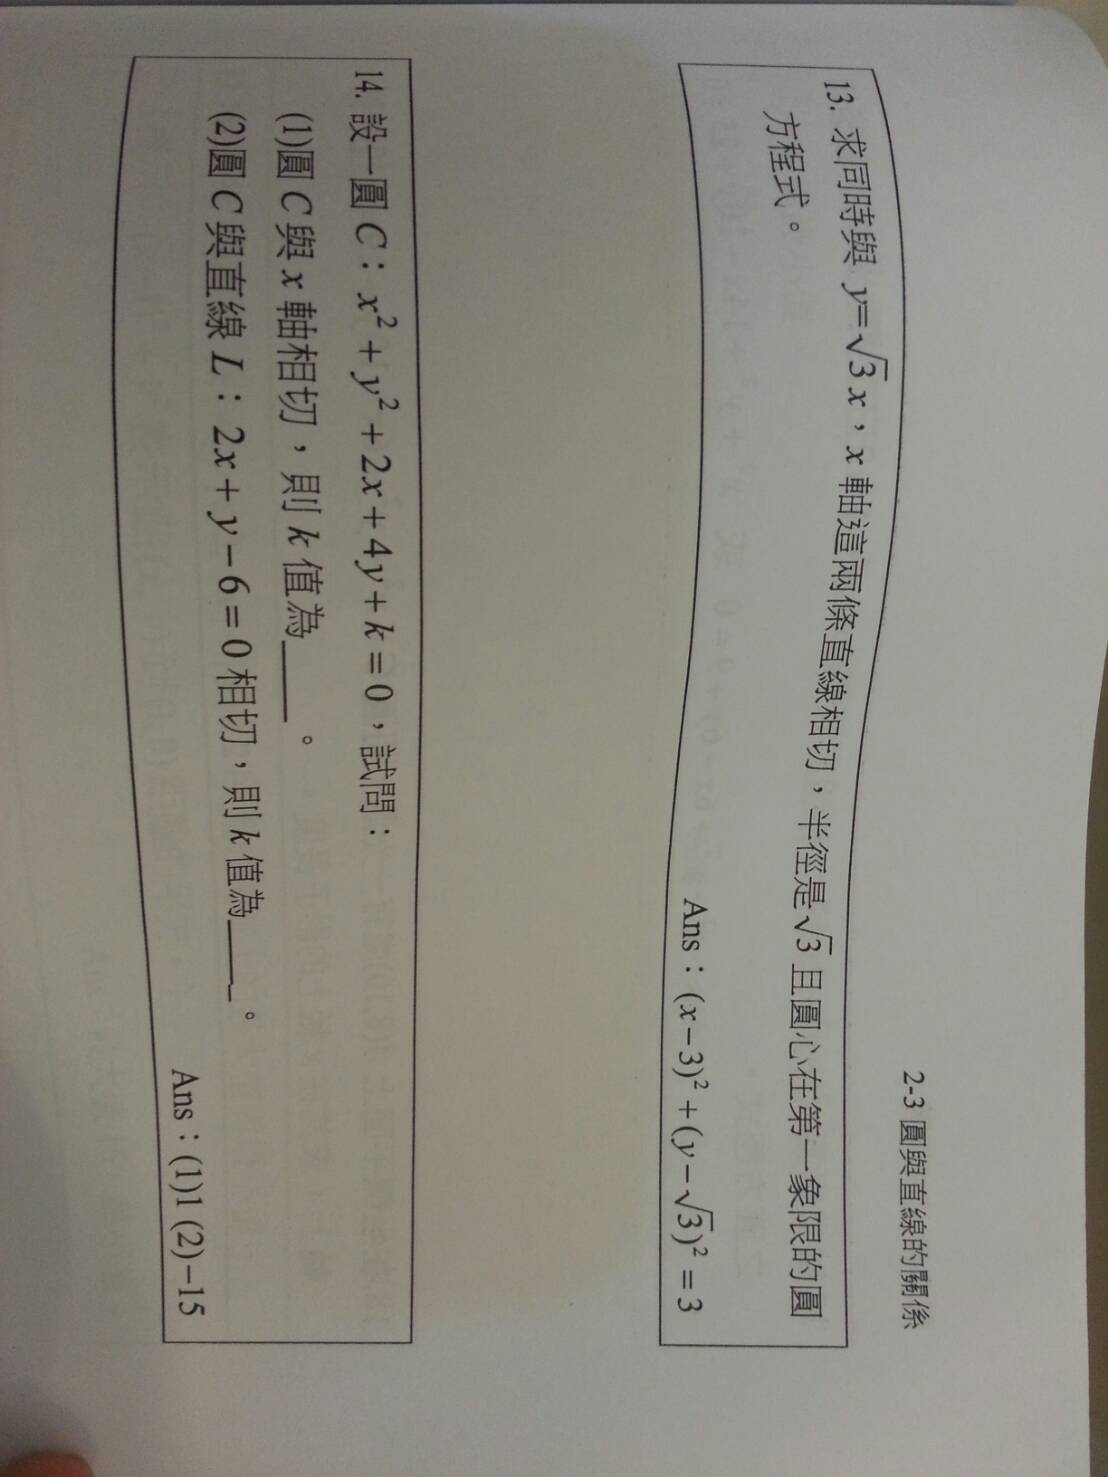 2-3 圓與直線的關係
13. 求同時與 y=√3 x，x 軸這兩條直線相切，半徑是√3 且圓心在第一象限的圓
方程式。
Ans：(x−3)²+(y−√3)²=3
14. 設一圓 C：x²+y²+2x+4y+k=0，試問：
(1)圓 C 與 x 軸相切，則 k 值為____。
(2)圓 C 與直線 L：2x+y−6=0 相切，則 k 值為____。
Ans：(1)1 (2)−15